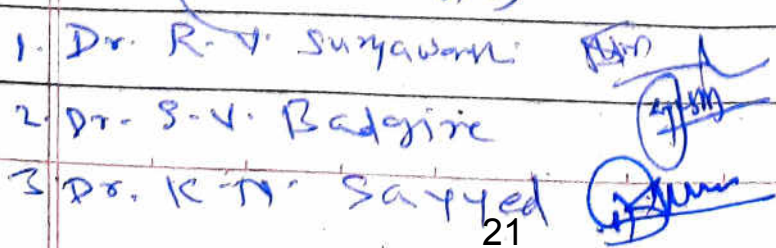 1. Dr. R. V. Suryawanshi
2. Dr. S. V. Badgire
3 Dr. K. N. Sayyed
21